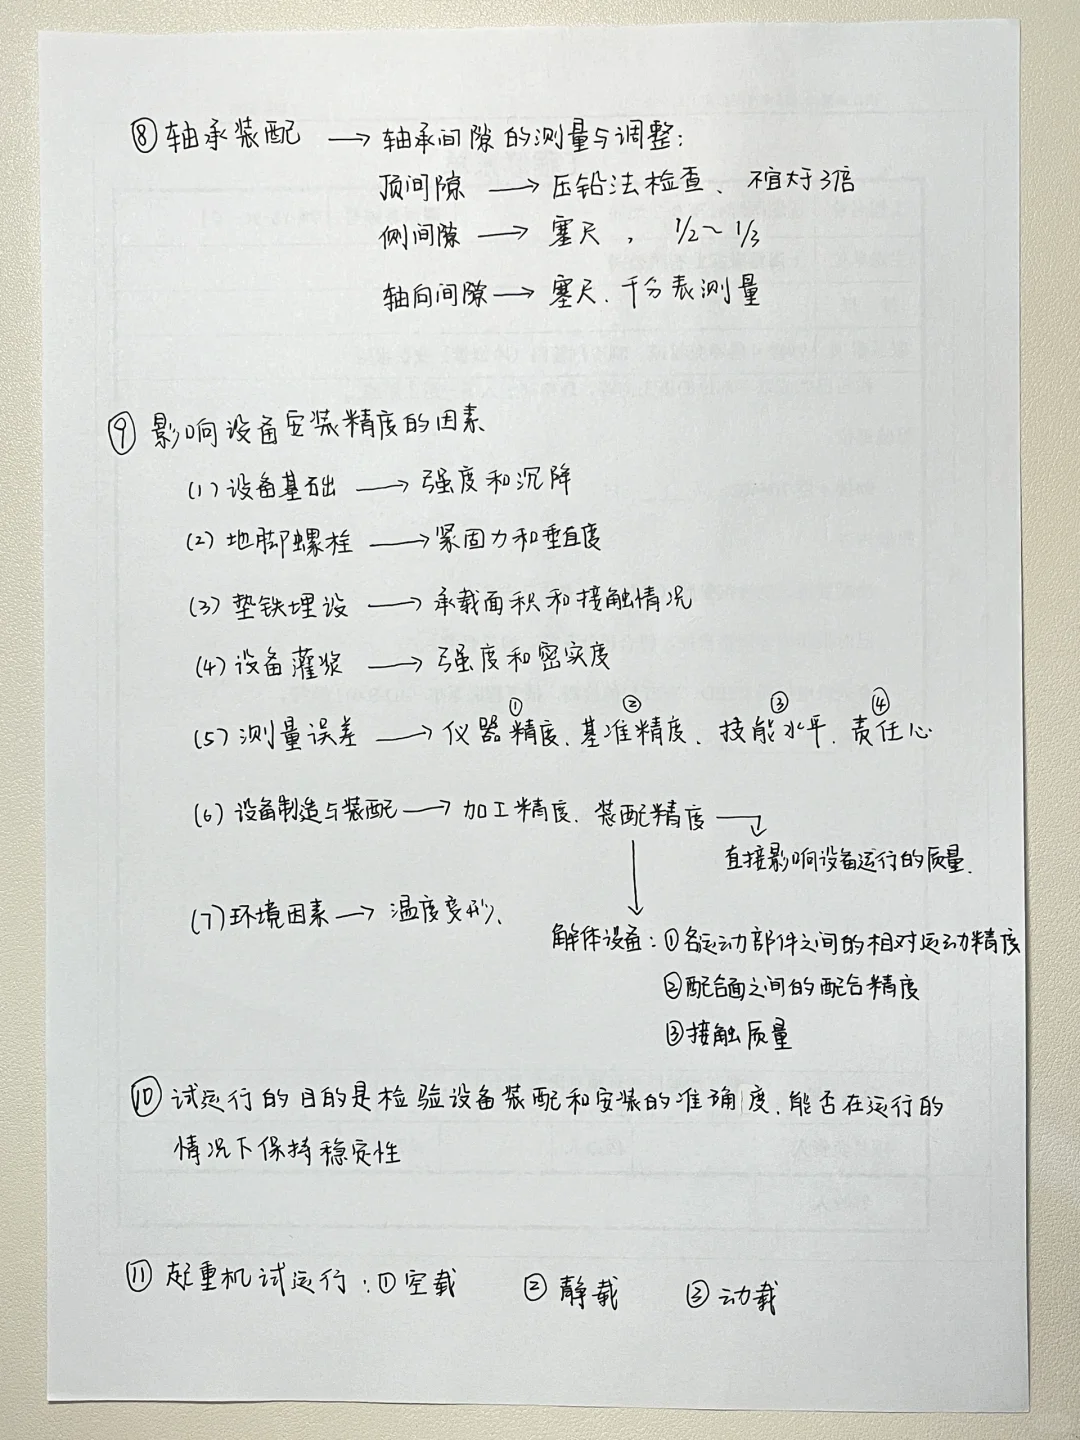 ⑧轴承装配 → 轴承间隙的测量与调整:
顶间隙 → 压铅法检查、不宜大于3倍
侧间隙 → 塞尺, 1/2~1/3
轴向间隙 → 塞尺、千分表测量
⑨ 影响设备安装精度的因素
(1)设备基础 → 强度和沉降
(2)地脚螺栓 → 紧固力和垂直度
(3)垫铁埋设 → 承载面积和接触情况
(4)设备灌浆 → 强度和密实度
① ② ③ ④
(5)测量误差 → 仪器精度、基准精度、技能水平、责任心
(6)设备制造与装配 → 加工精度、装配精度 →
直接影响设备运行的质量.
(7)环境因素 → 温度变形、
解体设备:①各运动部件之间的相对运动精度
②配合面之间的配合精度
③接触质量
⑩ 试运行的目的是检验设备装配和安装的准确度,能否在运行的
情况下保持稳定性
⑪ 起重机试运行:①空载 ②静载 ③动载